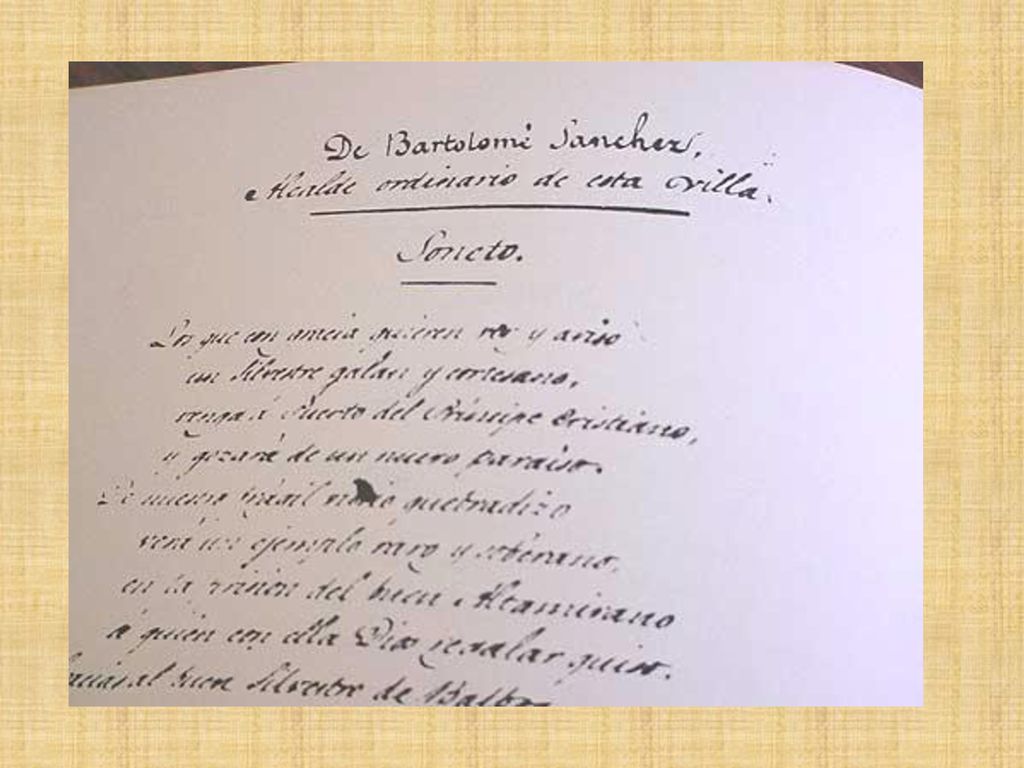 De Bartolomé Sanchez,
Alcalde ordinario de esta villa.
Soneto.
Los que con quieren ver y aviso
un Silvestre galán y cortesano,
venga á Puerto del Príncipe Cristiano,
y gozará de un nuevo paraiso.
De nuestro frágil vidrio quebradizo
verá un ejemplo raro y soberano,
en la prisión del buen Altamirano
á quien con ella Dios regalar quiso.
al buen Silvestre de